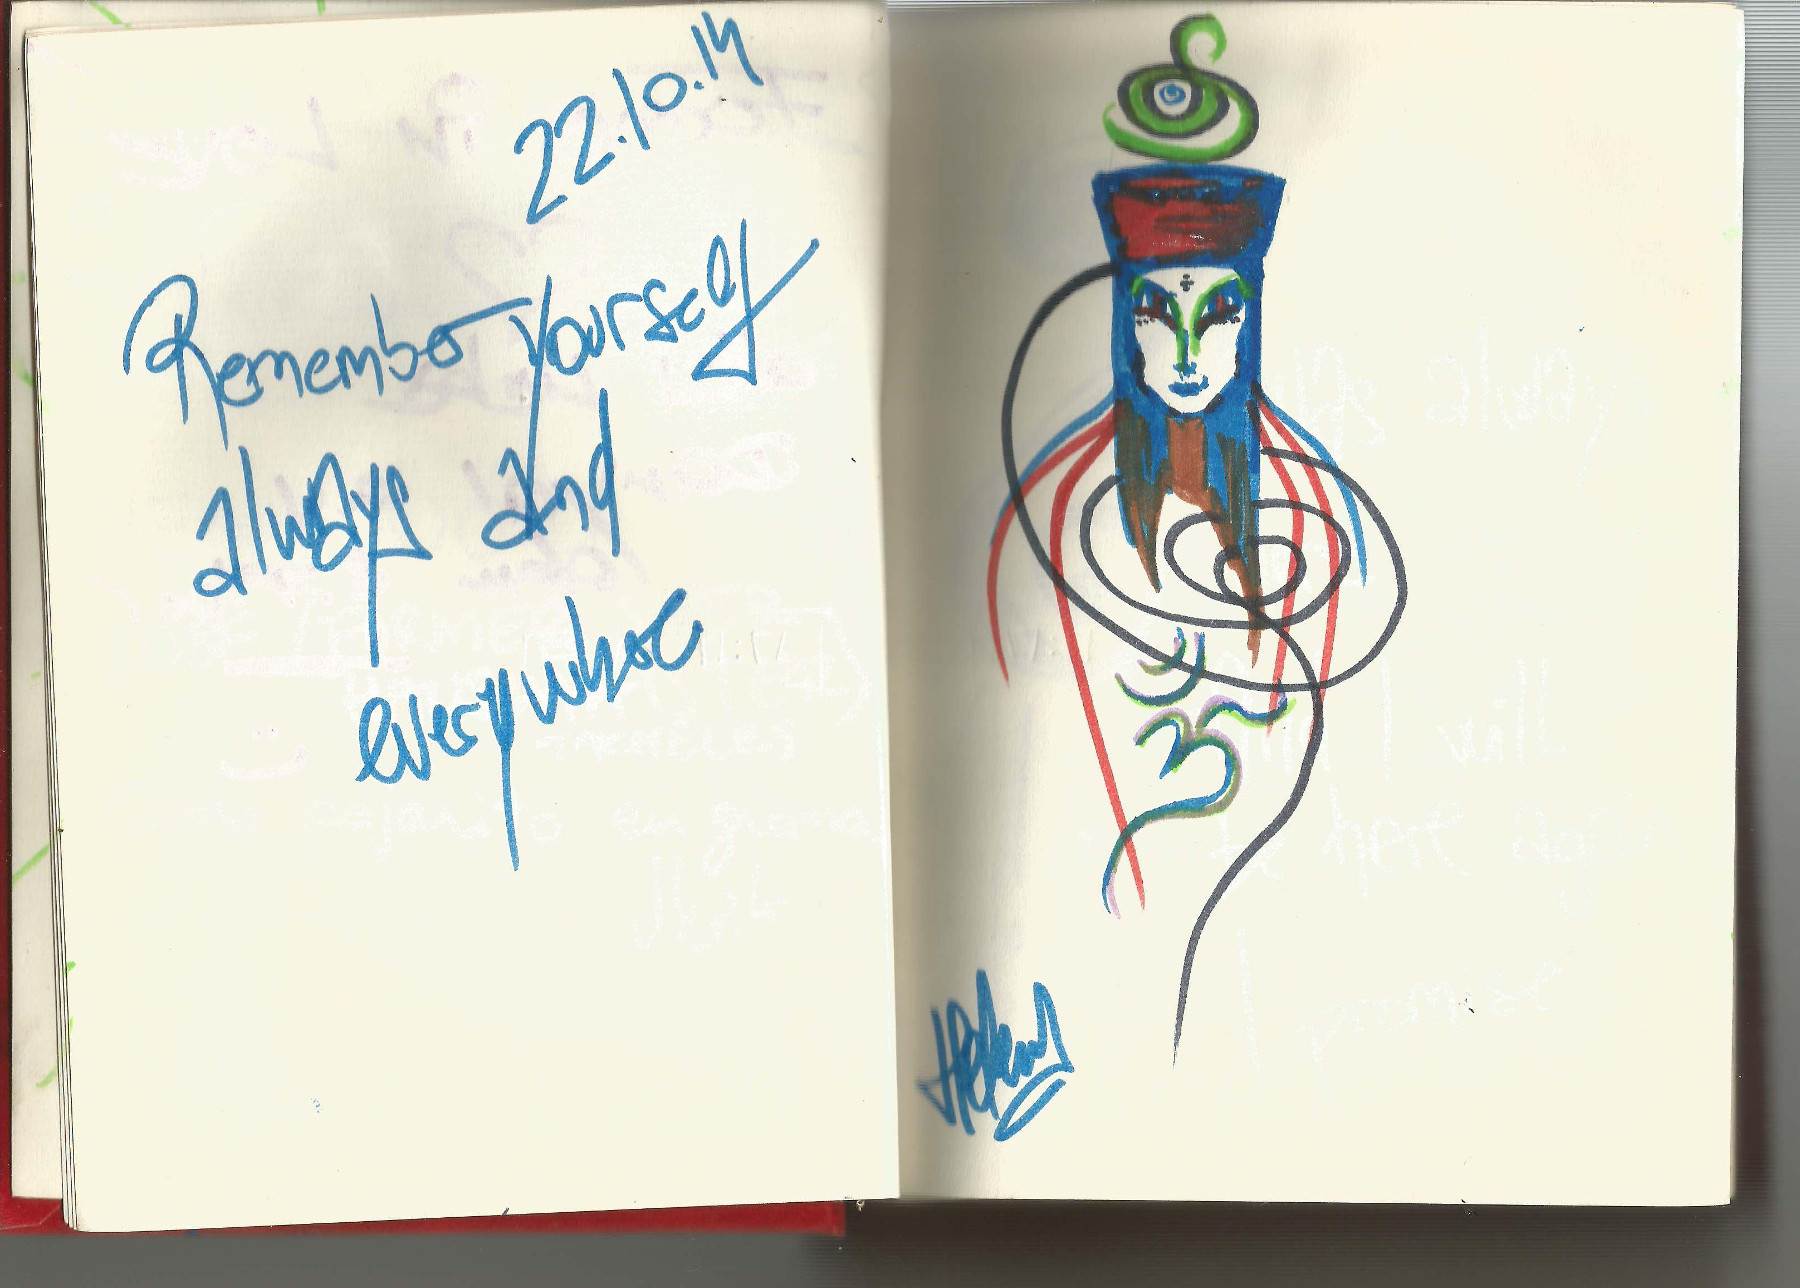 22.10.14
Remember yourself
always and
everywhere
ॐ